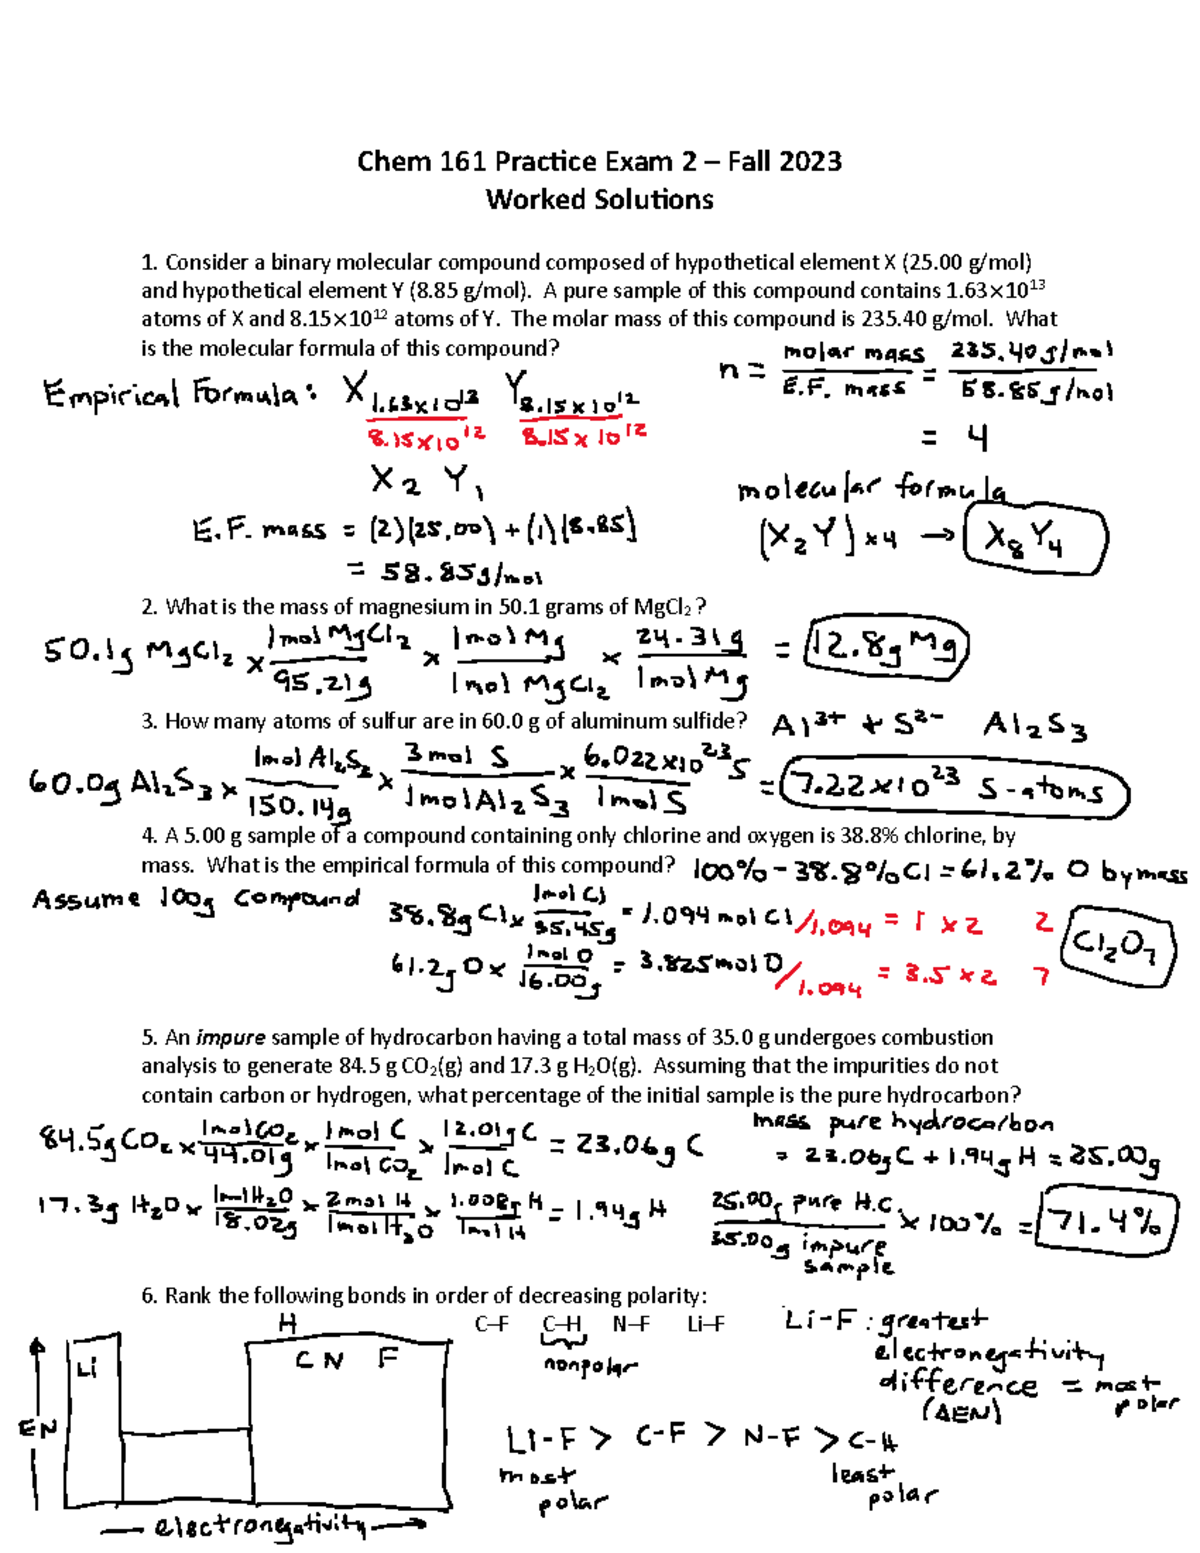 Chem 161 Practice Exam 2 – Fall 2023
Worked Solutions
1. Consider a binary molecular compound composed of hypothetical element X (25.00 g/mol)
and hypothetical element Y (8.85 g/mol). A pure sample of this compound contains 1.63×10¹³
atoms of X and 8.15×10¹² atoms of Y. The molar mass of this compound is 235.40 g/mol. What
is the molecular formula of this compound?
Empirical Formula: X 1.63x10¹³ / 8.15x10¹² Y 8.15x10¹² / 8.15x10¹²
X₂ Y₁
E.F. mass = (2)(25.00) + (1)(8.85)
= 58.85g/mol
n = molar mass / E.F. mass = 235.40g/mol / 58.85g/mol
= 4
molecular formula
(X₂Y)x4 → X₈Y₄
2. What is the mass of magnesium in 50.1 grams of MgCl₂?
50.1g MgCl₂ x 1mol MgCl₂ / 95.21g x 1mol Mg / 1mol MgCl₂ x 24.31g / 1mol Mg = 12.8g Mg
3. How many atoms of sulfur are in 60.0 g of aluminum sulfide? Al³⁺ + S²⁻ Al₂S₃
60.0g Al₂S₃ x 1mol Al₂S₃ / 150.14g x 3 mol S / 1mol Al₂S₃ x 6.022x10²³ S / 1mol S = 7.22x10²³ S-atoms
4. A 5.00 g sample of a compound containing only chlorine and oxygen is 38.8% chlorine, by
mass. What is the empirical formula of this compound? 100% - 38.8% Cl = 61.2% O by mass
Assume 100g compound
38.8g Cl x 1mol Cl / 35.45g = 1.094 mol Cl /1.094 = 1 x2 2
61.2g O x 1mol O / 16.00g = 3.825mol O /1.094 = 3.5 x2 7
Cl₂O₇
5. An impure sample of hydrocarbon having a total mass of 35.0 g undergoes combustion
analysis to generate 84.5 g CO₂(g) and 17.3 g H₂O(g). Assuming that the impurities do not
contain carbon or hydrogen, what percentage of the initial sample is the pure hydrocarbon?
84.5g CO₂ x 1molCO₂ / 44.01g x 1mol C / 1mol CO₂ x 12.01g C / 1mol C = 23.06g C
17.3g H₂O x 1molH₂O / 18.02g x 2mol H / 1molH₂O x 1.008g H / 1mol H = 1.94g H
mass pure hydrocarbon
= 23.06g C + 1.94g H = 25.00g
25.00g pure H.C. / 35.00g impure sample x 100% = 71.4%
6. Rank the following bonds in order of decreasing polarity:
C–F C–H N–F Li–F
nonpolar
H
Li C N F
EN
electronegativity
Li-F: greatest
electronegativity
difference = most polar
(ΔEN)
Li-F > C-F > N-F > C-H
most polar
least polar